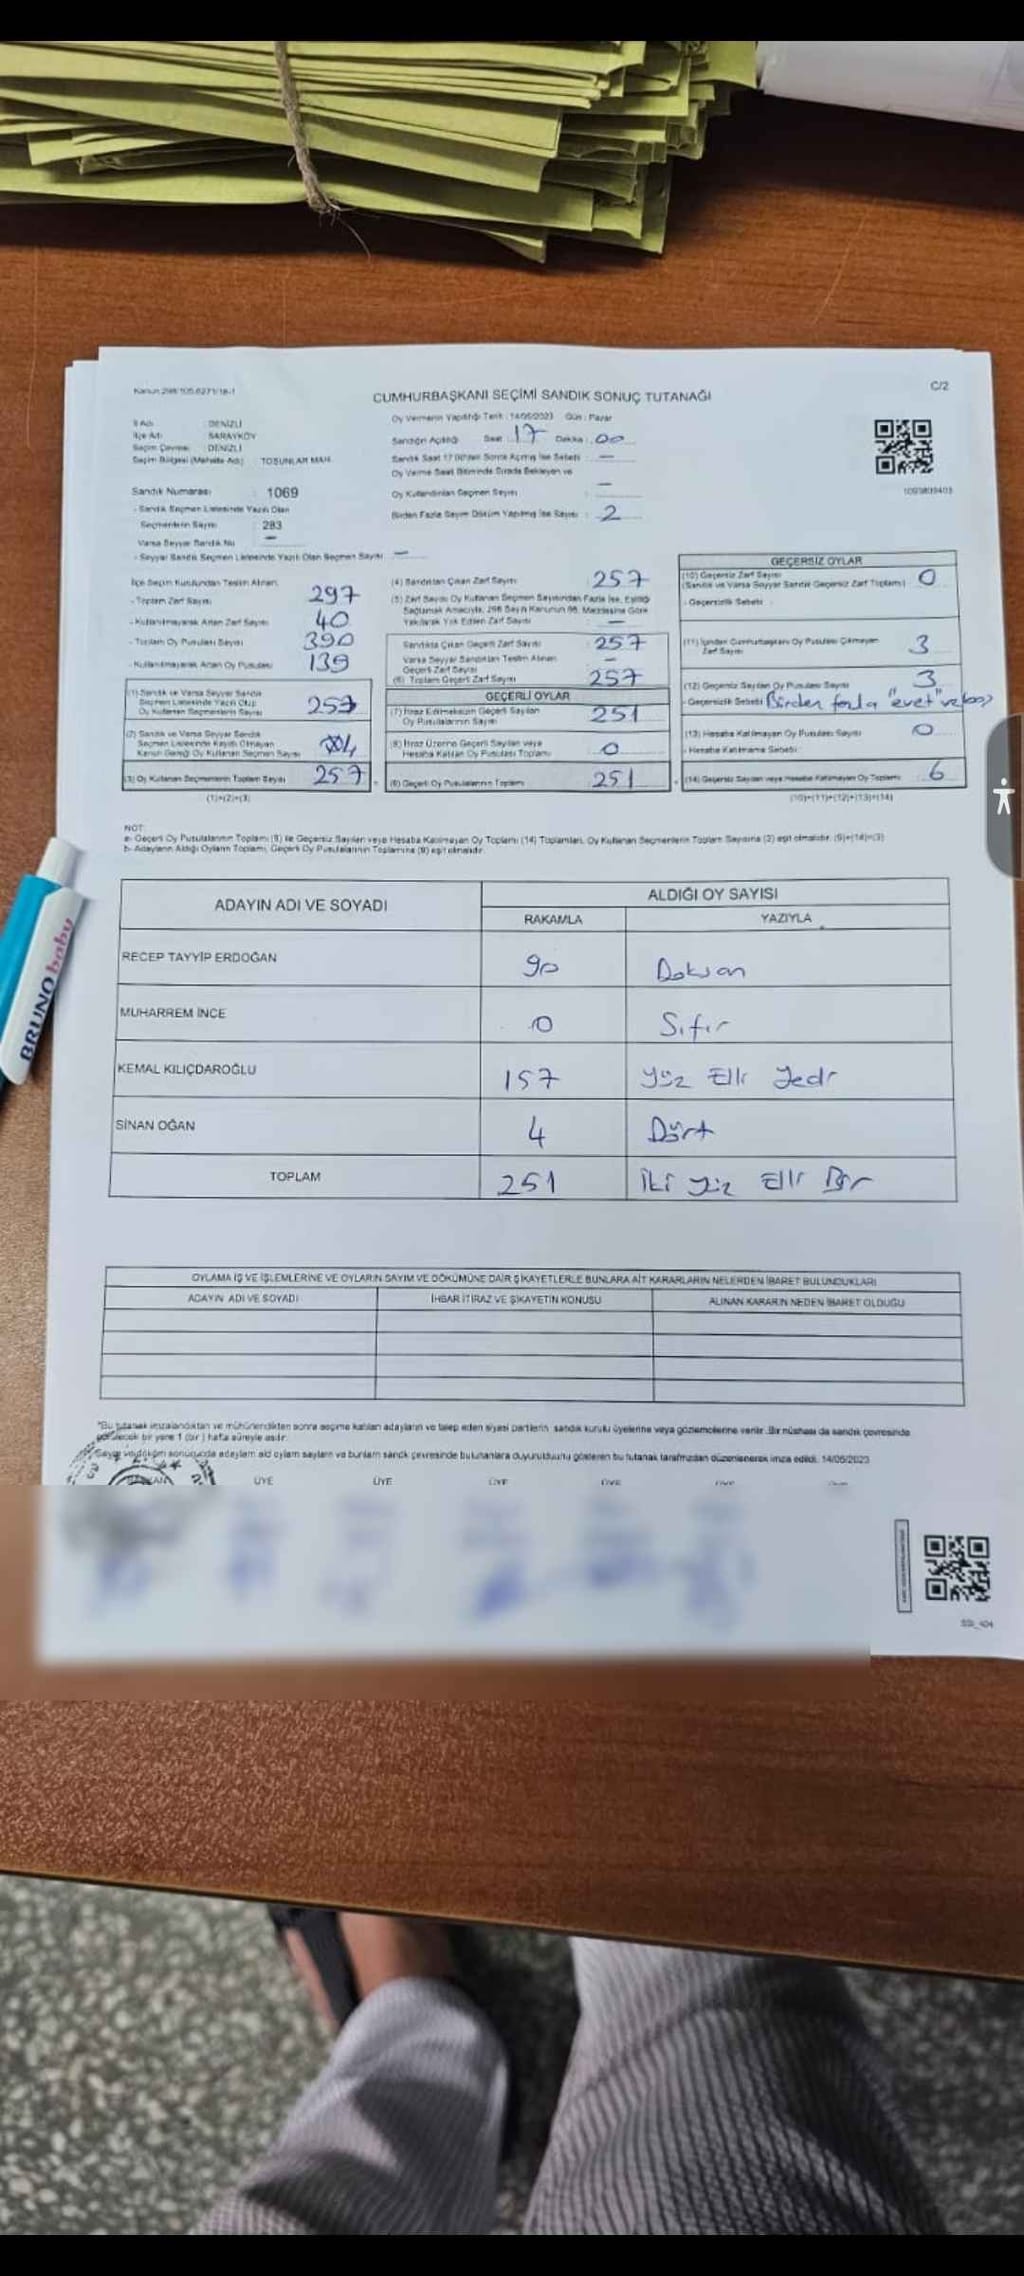 Kanun 298/105,6271/18-1
C/2
CUMHURBAŞKANI SEÇİMİ SANDIK SONUÇ TUTANAĞI
İl Adı : DENİZLİ
İlçe Adı : SARAYKÖY
Seçim Çevresi : DENİZLİ
Seçim Bölgesi (Mahalle Adı) : TOSUNLAR MAH.
Sandık Numarası : 1069
- Sandık Seçmen Listesinde Yazılı Olan
Seçmenlerin Sayısı : 283
Varsa Seyyar Sandık No : —
- Seyyar Sandık Seçmen Listesinde Yazılı Olan Seçmen Sayısı : —
Oy Vermenin Yapıldığı Tarih : 14/05/2023 Gün : Pazar
Sandığın Açıldığı Saat : 17 Dakika : 00
Sandık Saat 17.00'den Sonra Açılmış İse Sebebi : —
Oy Verme Saati Bitiminde Sırada Bekleyen ve
Oy Kullandırılan Seçmen Sayısı : —
Birden Fazla Sayım Döküm Yapılmış İse Sayısı : 2
1093809403
İlçe Seçim Kurulundan Teslim Alınan:
- Toplam Zarf Sayısı : 297
- Kullanılmayarak Artan Zarf Sayısı : 40
- Toplam Oy Pusulası Sayısı : 390
- Kullanılmayarak Artan Oy Pusulası : 139
(1) Sandık ve Varsa Seyyar Sandık
Seçmen Listesinde Yazılı Olup
Oy Kullanan Seçmenlerin Sayısı
(2) Sandık ve Varsa Seyyar Sandık
Seçmen Listesinde Kayıtlı Olmayan
Kanun Gereği Oy Kullanan Seçmen Sayısı
(3) Oy Kullanan Seçmenlerin Toplam Sayısı 257
(1)+(2)=(3)
(4) Sandıktan Çıkan Zarf Sayısı : 257
(5) Zarf Sayısı Oy Kullanan Seçmen Sayısından Fazla İse, Eşitliği
Sağlamak Amacıyla, 298 Sayılı Kanunun 98. Maddesine Göre
Yakılarak Yok Edilen Zarf Sayısı : —
Sandıkta Çıkan Geçerli Zarf Sayısı : 257
Varsa Seyyar Sandıktan Teslim Alınan
Geçerli Zarf Sayısı : —
(6) Toplam Geçerli Zarf Sayısı : 257
GEÇERLİ OYLAR
(7) İtiraz Edilmeksizin Geçerli Sayılan
Oy Pusulalarının Sayısı : 251
(8) İtiraz Üzerine Geçerli Sayılan veya
Hesaba Katılan Oy Pusulası Toplamı : 0
(9) Geçerli Oy Pusulalarının Toplamı : 251
GEÇERSİZ OYLAR
(10) Geçersiz Zarf Sayısı : 0
(Sandık ve Varsa Seyyar Sandık Geçersiz Zarf Toplamı)
- Geçersizlik Sebebi :
(11) İçinden Cumhurbaşkanı Oy Pusulası Çıkmayan
Zarf Sayısı : 3
(12) Geçersiz Sayılan Oy Pusulası Sayısı : 3
- Geçersizlik Sebebi Birden fazla "evet" ve boş
(13) Hesaba Katılmayan Oy Pusulası Sayısı : 0
- Hesaba Katılmama Sebebi :
(14) Geçersiz Sayılan veya Hesaba Katılmayan Oy Toplamı : 6
(10)+(11)+(12)+(13)=(14)
NOT:
a- Geçerli Oy Pusulalarının Toplamı (9) ile Geçersiz Sayılan veya Hesaba Katılmayan Oy Toplamı (14) Toplamları, Oy Kullanan Seçmenlerin Toplam Sayısına (3) eşit olmalıdır. (9)+(14)=(3)
b- Adayların Aldığı Oyların Toplamı, Geçerli Oy Pusulalarının Toplamına (9) eşit olmalıdır.
ADAYIN ADI VE SOYADI
ALDIĞI OY SAYISI
RAKAMLA YAZIYLA
RECEP TAYYİP ERDOĞAN 90 Doksan
MUHARREM İNCE 0 Sıfır
KEMAL KILIÇDAROĞLU 157 Yüz Elli Yedi
SİNAN OĞAN 4 Dört
TOPLAM 251 İki Yüz Elli Bir
OYLAMA İŞ VE İŞLEMLERİNE VE OYLARIN SAYIM VE DÖKÜMÜNE DAİR ŞİKAYETLERLE BUNLARA AİT KARARLARIN NELERDEN İBARET BULUNDUKLARI
ADAYIN ADI VE SOYADI İHBAR İTİRAZ VE ŞİKAYETİN KONUSU ALINAN KARARIN NEDEN İBARET OLDUĞU
*Bu tutanak imzalandıktan ve mühürlendikten sonra seçime katılan adayların ve talep eden siyasi partilerin sandık kurulu üyelerine veya gözlemcilerine verilir. Bir nüshası da sandık çevresinde
görülecek bir yere 1 (bir) hafta süreyle asılır.
Sayım ve döküm sonucunda adayların aldığı oyların sayıları ve bunların sandık çevresinde bulunanlara duyurulduğunu gösteren bu tutanak tarafımızdan düzenlenerek imza edildi. 14/05/2023
BAŞKAN ÜYE ÜYE ÜYE ÜYE ÜYE
BRUNO baby